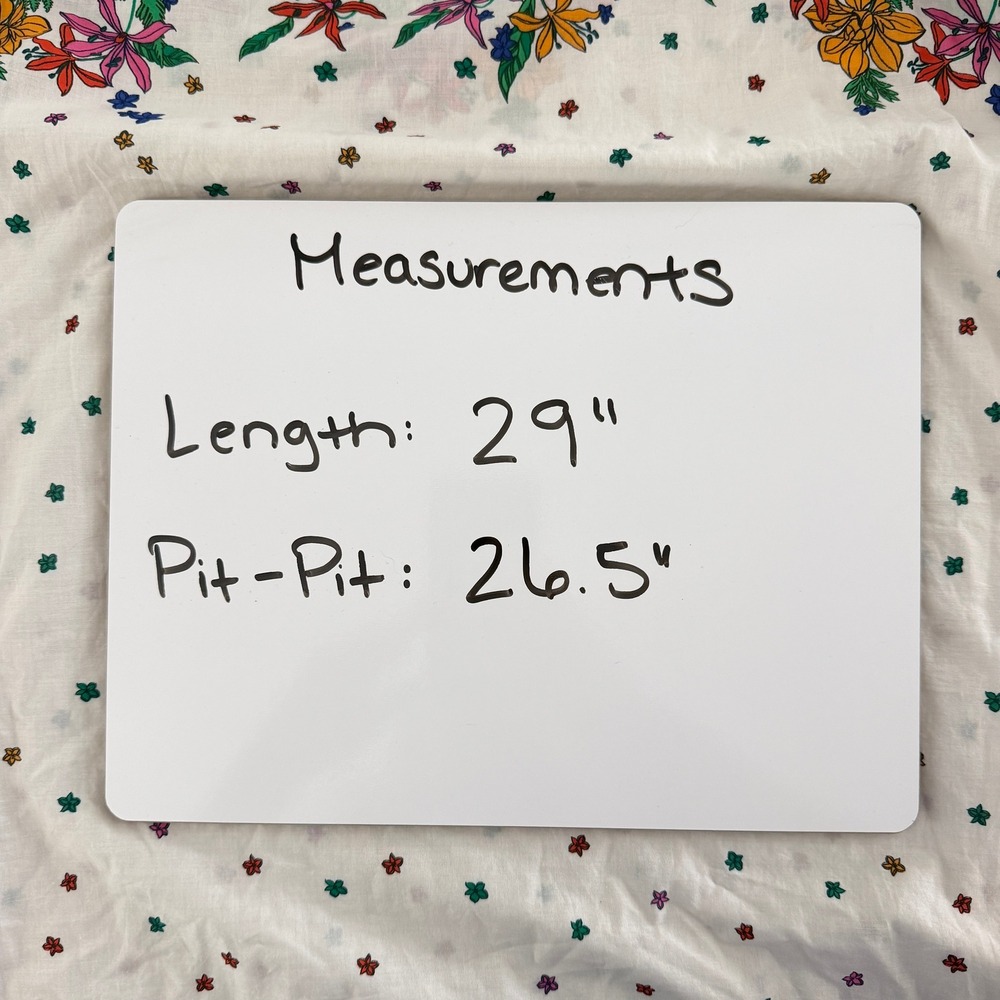 Measurements
Length: 29"
Pit-Pit: 26.5"